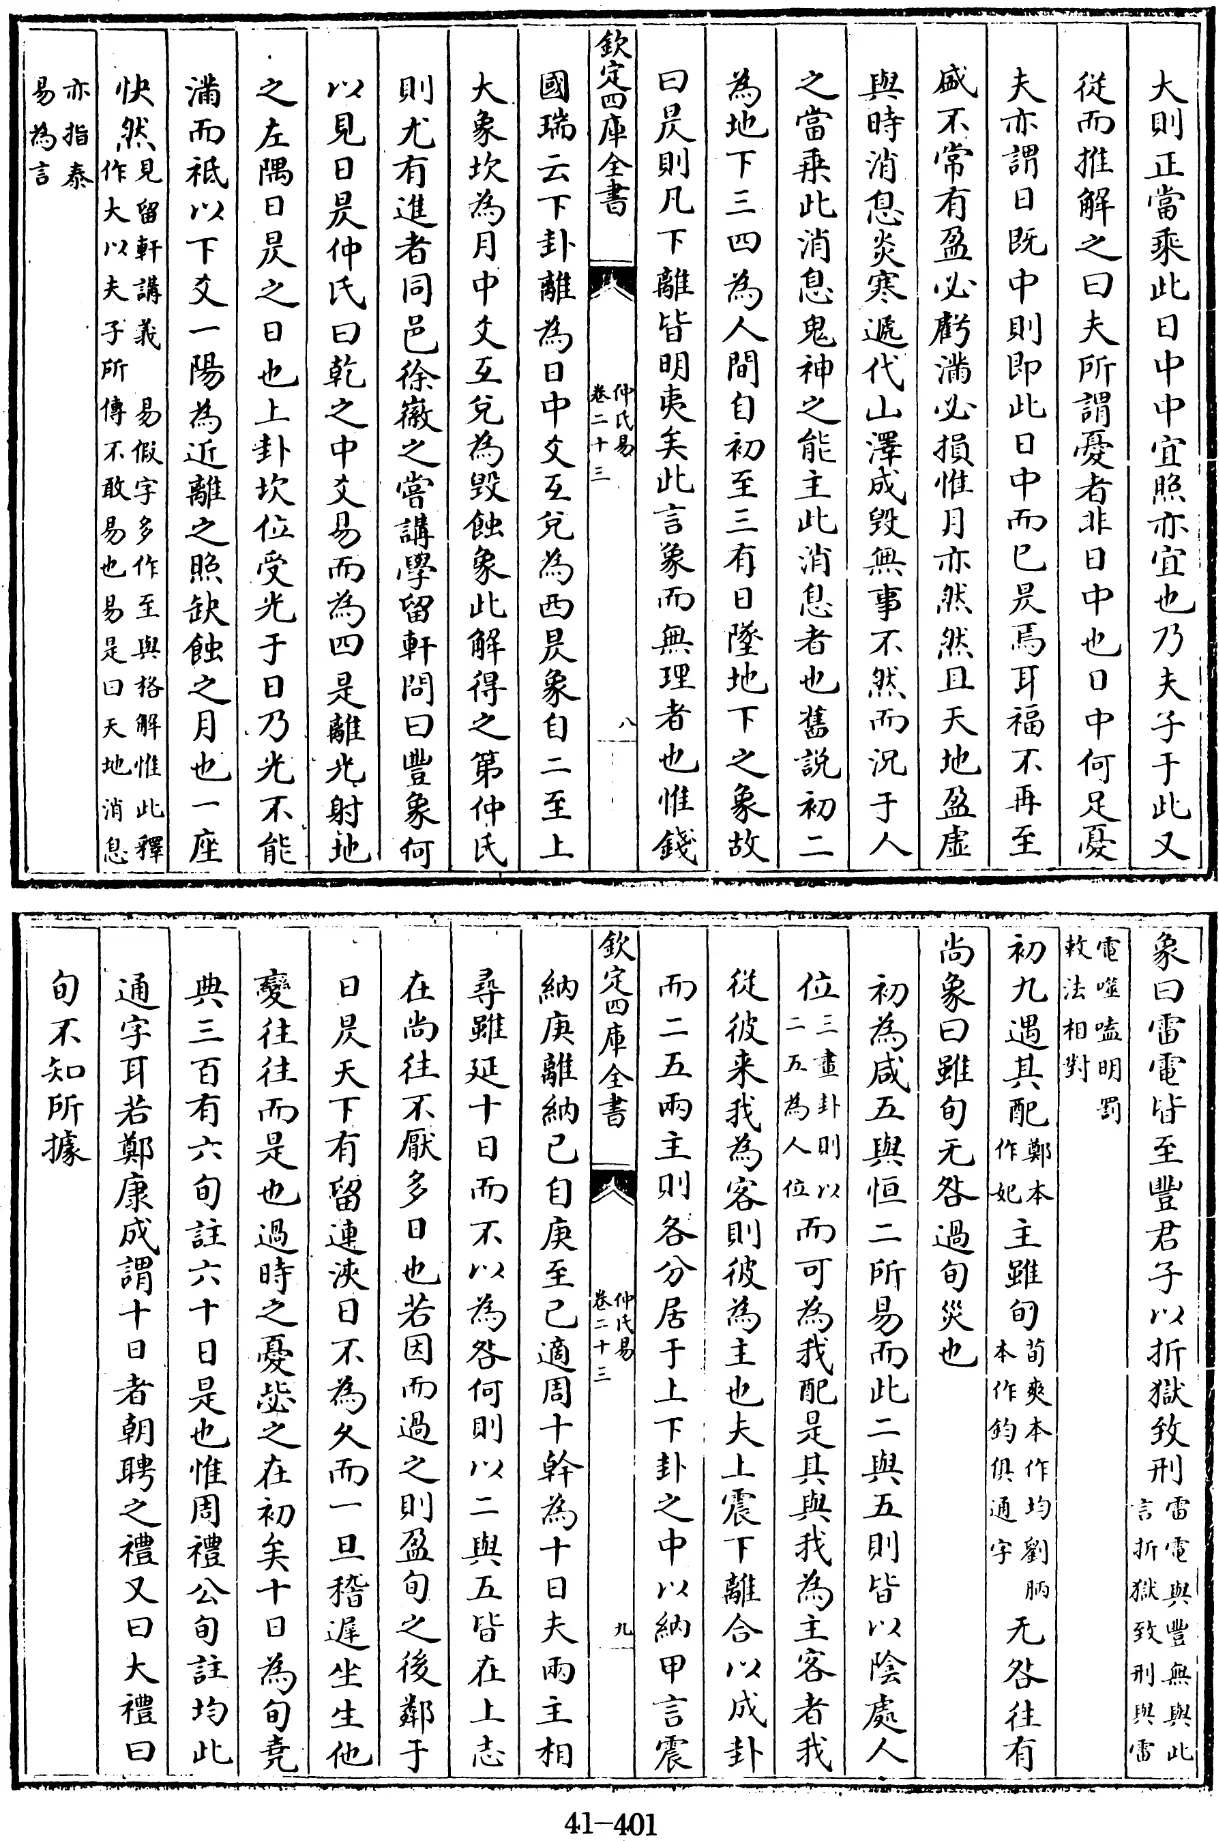 大則正當乘此日中中宜照亦宜也乃夫子于此又
從而推解之曰夫所謂憂者非日中也日中何足憂
夫亦謂日既中則即此日中而已昃焉耳福不再至
盛不常有盈必虧滿必損惟月亦然然且天地盈虛
與時消息炎寒遞代山澤成毀無事不然而況于人
之當乘此消息鬼神之能主此消息者也舊說初二
為地下三四為人間自初至三有日墜地下之象故
曰昃則凡下離皆明夷矣此言象而無理者也惟錢
欽定四庫全書
仲氏易
卷二十三
八
國瑞云下卦離為日中爻互兌為西昃象自二至上
大象坎為月中爻互兌為毀蝕象此解得之第仲氏
則尤有進者同邑徐徽之嘗講學留軒問曰豐象何
以見日昃仲氏曰乾之中爻易而為四是離光射地
之左隅日昃之日也上卦坎位受光于日乃光不能
滿而祗以下爻一陽為近離之照缺蝕之月也一座
快然見留軒講義 易假字多作至與格解惟此釋
作大以夫子所傳不敢易也易是曰天地消息
亦指泰
易為言
象曰雷電皆至豐君子以折獄致刑雷電與豐無與此
言折獄致刑與雷
電噬嗑明罰
敕法相對
初九遇其配鄭本
作妃主雖旬荀爽本作均劉昞
本作鈞俱通字无咎往有
尚象曰雖旬无咎過旬災也
初為咸五與恒二所易而此二與五則皆以陰處人
位三畫卦則以
二五為人位而可為我配是其與我為主客者我
從彼來我為客則彼為主也夫上震下離合以成卦
而二五兩主則各分居于上下卦之中以納甲言震
欽定四庫全書
仲氏易
卷二十三
九
納庚離納已自庚至已適周十幹為十日夫兩主相
尋雖延十日而不以為咎何則以二與五皆在上志
在尚往不厭多日也若因而過之則盈旬之後鄰于
日昃天下有留連浹日不為久而一旦稽遲坐生他
變往往而是也過時之憂毖之在初矣十日為旬堯
典三百有六旬註六十日是也惟周禮公旬註均此
通字耳若鄭康成謂十日者朝聘之禮又曰大禮曰
旬不知所據
41-401